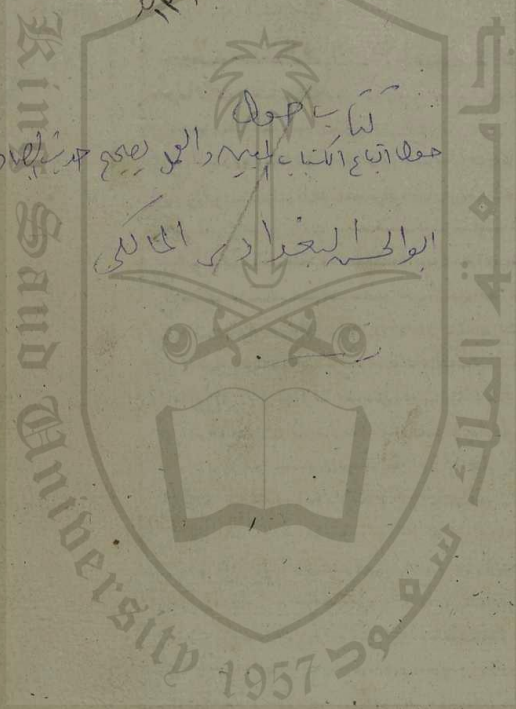 كتاب حول
حول اتباع الكتاب المبين والعمل بصحيح حديث
ابو الحسن البغدادي المالكي
King Saud University 1957
جامعة الملك سعود